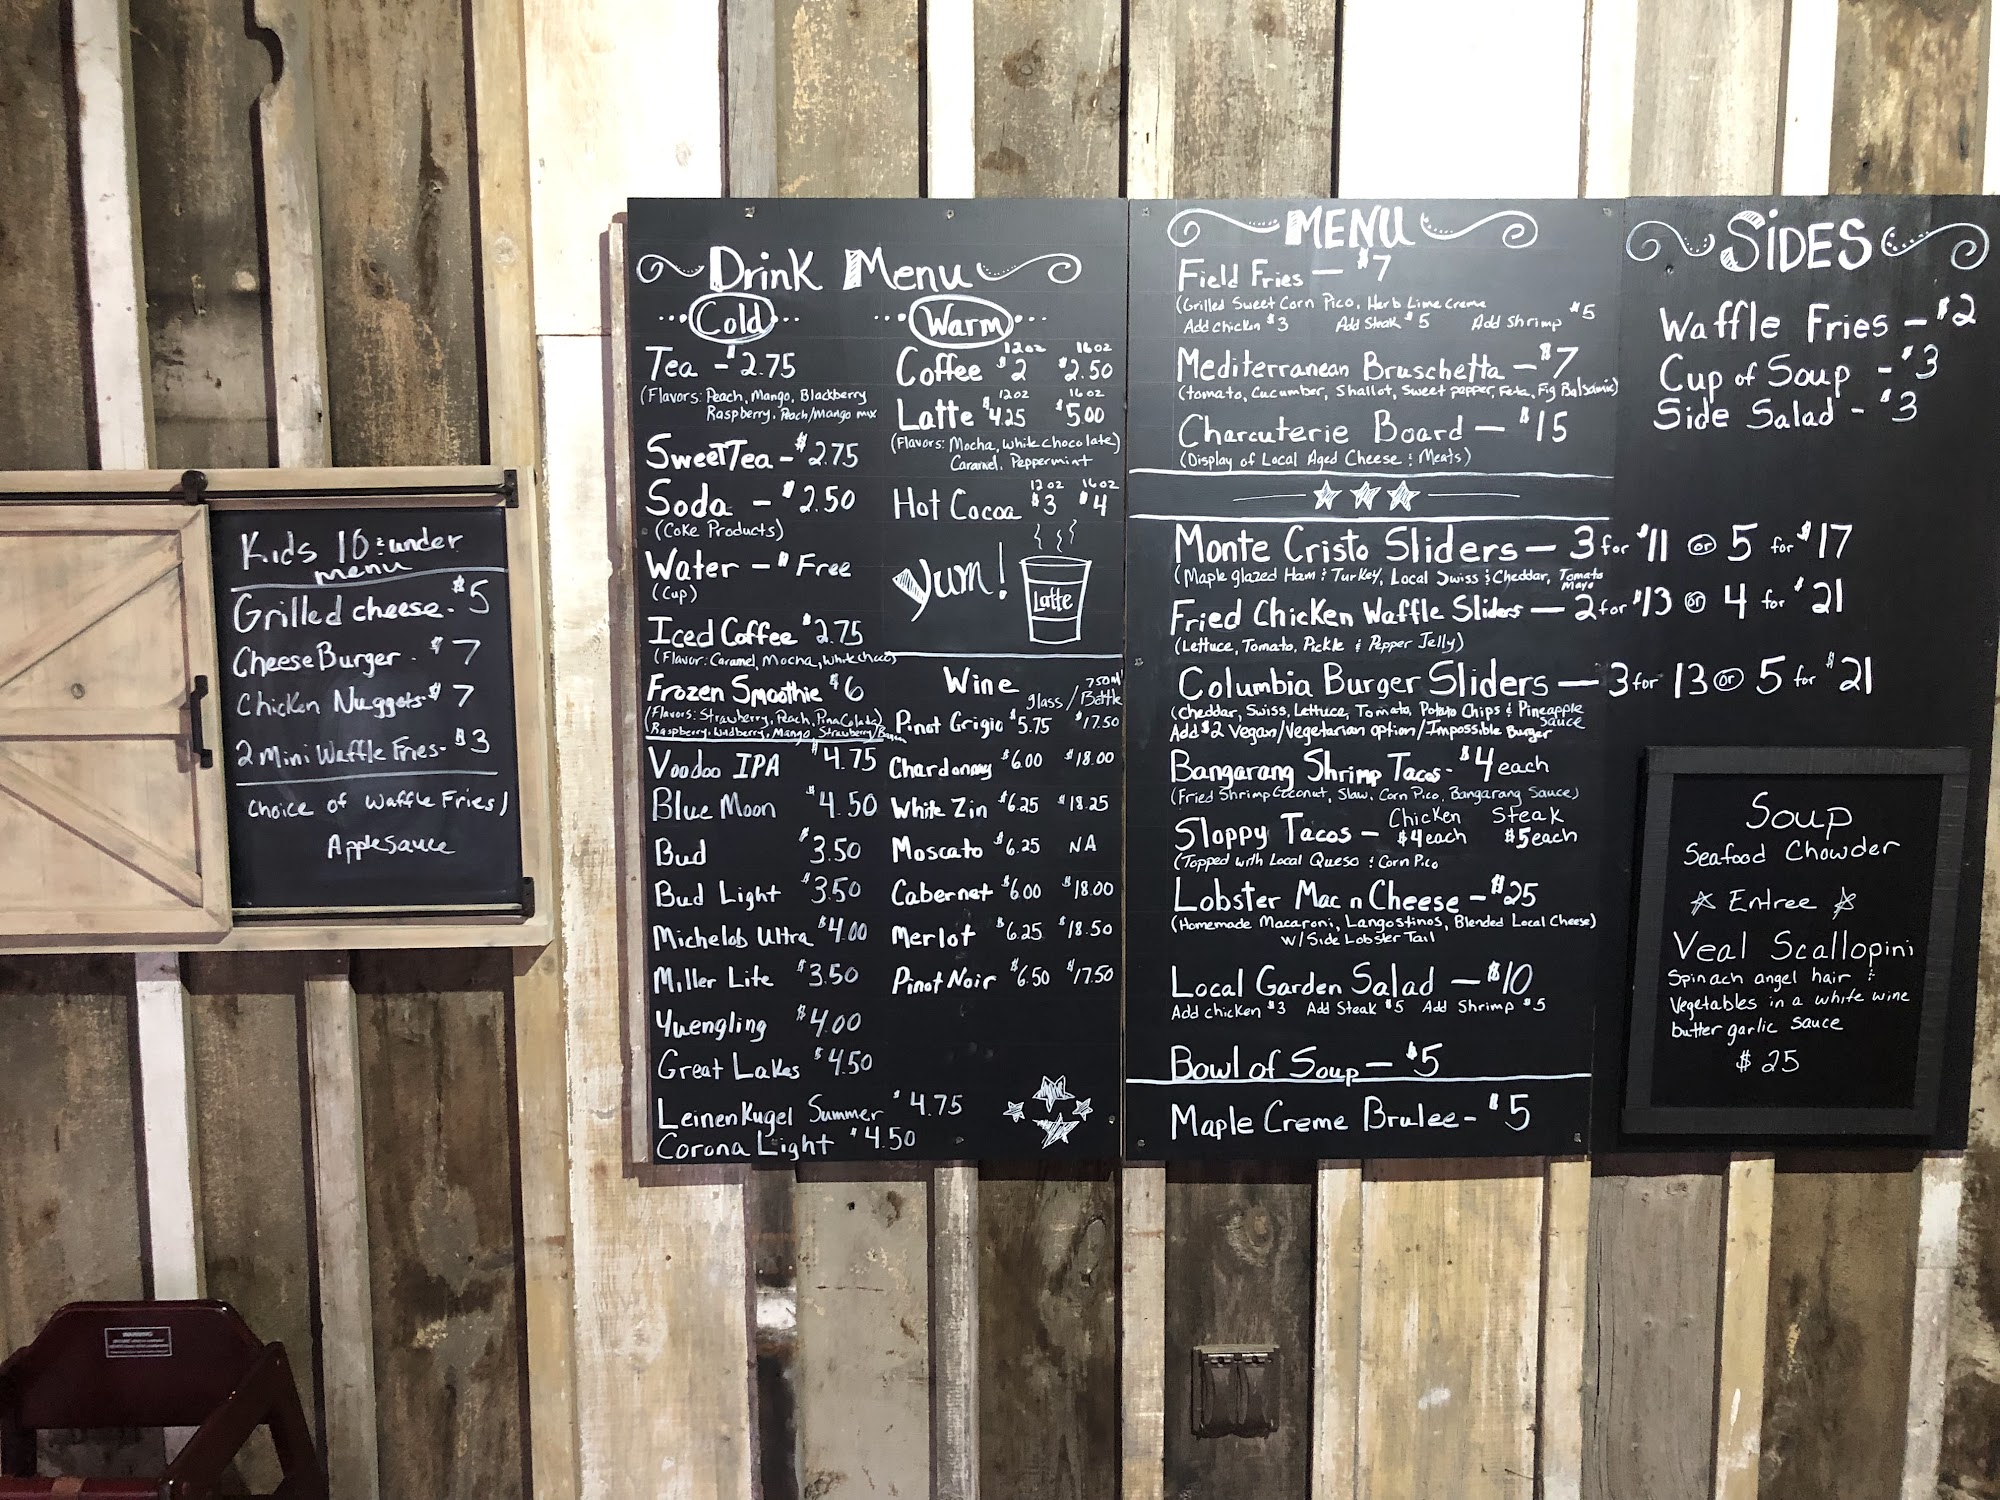 Kids 10 & under
menu
Grilled cheese - $5
Cheese Burger - $7
Chicken Nuggets - $7
2 mini Waffle Fries - $3
choice of waffle Fries /
Applesauce
Drink Menu
Cold
Tea - $2.75
(Flavors: Peach, Mango, Blackberry
Raspberry, Peach/Mango mix
Sweet Tea - $2.75
Soda - $2.50
(Coke Products)
Water - " Free
(Cup)
Iced Coffee $2.75
(Flavor: Caramel, Mocha, White choco
Frozen Smoothie $6
(Flavors: Strawberry, Peach, Pina Colada)
Raspberry, Wildberry, Mango, Strawberry/
Voodoo IPA $4.75
Blue Moon $4.50
Bud $3.50
Bud Light $3.50
Michelob Ultra $4.00
Miller Lite $3.50
Yuengling $4.00
Great Lakes $4.50
Leinenkugel Summer $4.75
Corona Light $4.50
Warm
12oz 16oz
Coffee $2 $2.50
12oz 16oz
Latte $4.25 $5.00
(Flavors: Mocha, white chocolate)
Caramel, Peppermint
12oz 16oz
Hot Cocoa $3 $4
Yum!
Latte
Wine
750ml
glass / Bottle
Pinot Grigio $5.75 $17.50
Chardonnay $6.00 $18.00
White Zin $6.25 $18.25
Moscato $6.25 NA
Cabernet $6.00 $18.00
Merlot $6.25 $18.50
Pinot Noir $6.50 $17.50
MENU
Field Fries — $7
(Grilled Sweet Corn Pico, Herb Lime Creme
Add chicken $3 Add Steak $5 Add Shrimp $5
Mediterranean Bruschetta — $7
(tomato, Cucumber, Shallot, Sweet pepper, Feta, Fig Balsamic)
Charcuterie Board — $15
(Display of Local Aged Cheese & Meats)
Monte Cristo Sliders — 3 for $11 or 5 for $17
(Maple glazed Ham & Turkey, Local Swiss & Cheddar, Tomato
Mayo
Fried Chicken Waffle Sliders — 2 for $13 or 4 for $21
(Lettuce, Tomato, Pickle & Pepper Jelly)
Columbia Burger Sliders — 3 for 13 or 5 for $21
(cheddar, Swiss, Lettuce, Tomato, Potato Chips & Pineapple
Sauce
Add $2 Vegan/Vegetarian option/Impossible Burger
Bangarang Shrimp Tacos - $4 each
(Fried Shrimp Coconut, Slaw, Corn Pico, Bangarang Sauce)
Chicken Steak
Sloppy Tacos — $4 each $5 each
(Topped with Local Queso & Corn Pico
Lobster Mac n Cheese - $25
(Homemade Macaroni, Langostinos, Blended Local Cheese)
W/ Side Lobster Tail
Local Garden Salad — $10
Add chicken $3 Add Steak $5 Add Shrimp $5
Bowl of Soup — $5
Maple Creme Brulee - $5
SIDES
Waffle Fries - $2
Cup of Soup - $3
Side Salad - $3
Soup
Seafood Chowder
Entree
Veal Scallopini
Spinach angel hair &
Vegetables in a white wine
butter garlic sauce
$25
WARNING